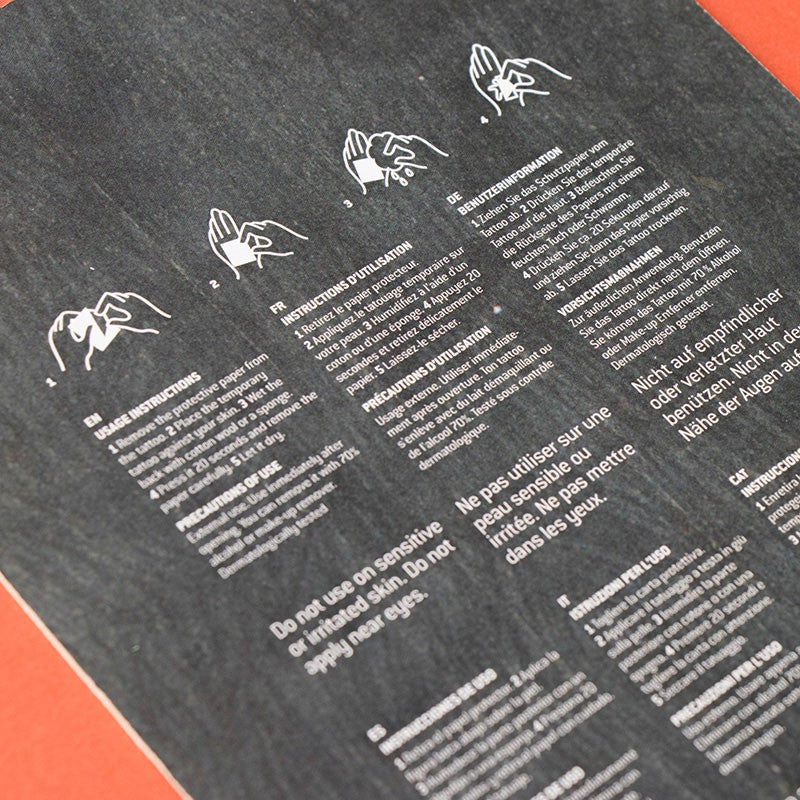 1
2
3
4
EN
USAGE INSTRUCTIONS
1 Remove the protective paper from
the tattoo. 2 Place the temporary
tattoo against your skin. 3 Wet the
back with cotton wool or a sponge.
4 Press it 20 seconds and remove the
paper carefully. 5 Let it dry.
PRECAUTIONS OF USE
External use. Use immediately after
opening. You can remove it with 70%
alcohol or make-up remover.
Dermatologically tested
Do not use on sensitive
or irritated skin. Do not
apply near eyes.
FR
INSTRUCTIONS D'UTILISATION
1 Retirez le papier protecteur.
2 Appliquez le tatouage temporaire sur
votre peau. 3 Humidifiez à l'aide d'un
coton ou d'une éponge. 4 Appuyez 20
secondes et retirez délicatement le
papier. 5 Laissez-le sécher.
PRÉCAUTIONS D'UTILISATION
Usage externe. Utiliser immédiate-
ment après ouverture. Ton tattoo
s'enlève avec du lait démaquillant ou
de l'alcool 70%. Testé sous contrôle
dermatologique.
Ne pas utiliser sur une
peau sensible ou
irritée. Ne pas mettre
dans les yeux.
DE
BENUTZERINFORMATION
1 Ziehen Sie das Schutzpapier vom
Tattoo ab. 2 Drücken Sie das temporäre
Tattoo auf die Haut. 3 Befeuchten Sie
die Rückseite des Papiers mit einem
feuchten Tuch oder Schwamm.
4 Drücken Sie ca. 20 Sekunden darauf
und ziehen Sie dann das Papier vorsichtig
ab. 5 Lassen Sie das Tattoo trocknen.
VORSICHTSMAẞNAHMEN
Zur äußerlichen Anwendung. Benutzen
Sie das Tattoo direkt nach dem Öffnen.
Sie können das Tattoo mit 70 % Alkohol
oder Make-up Enferner entfernen.
Dermatologisch getestet.
Nicht auf empfindlicher
oder verletzter Haut
benützen. Nicht in de
Nähe der Augen auf
ES
INSTRUCCIONES DE USO
1 Retira el papel protector. 2 Aplica la
DE USO
IT
ISTRUZIONI PER L'USO
1 Togliere la carta protettiva.
2 Applicare il tatuaggio a testa in giù
sulla pelle. 3 Inumidire la parte
posteriore con cotone o con una
spugna. 4 Premere 20 secondi e
togliere la carta con attenzione
PRECAUZIONI PER L'USO
CAT
INSTRUCCION
1 Enretira